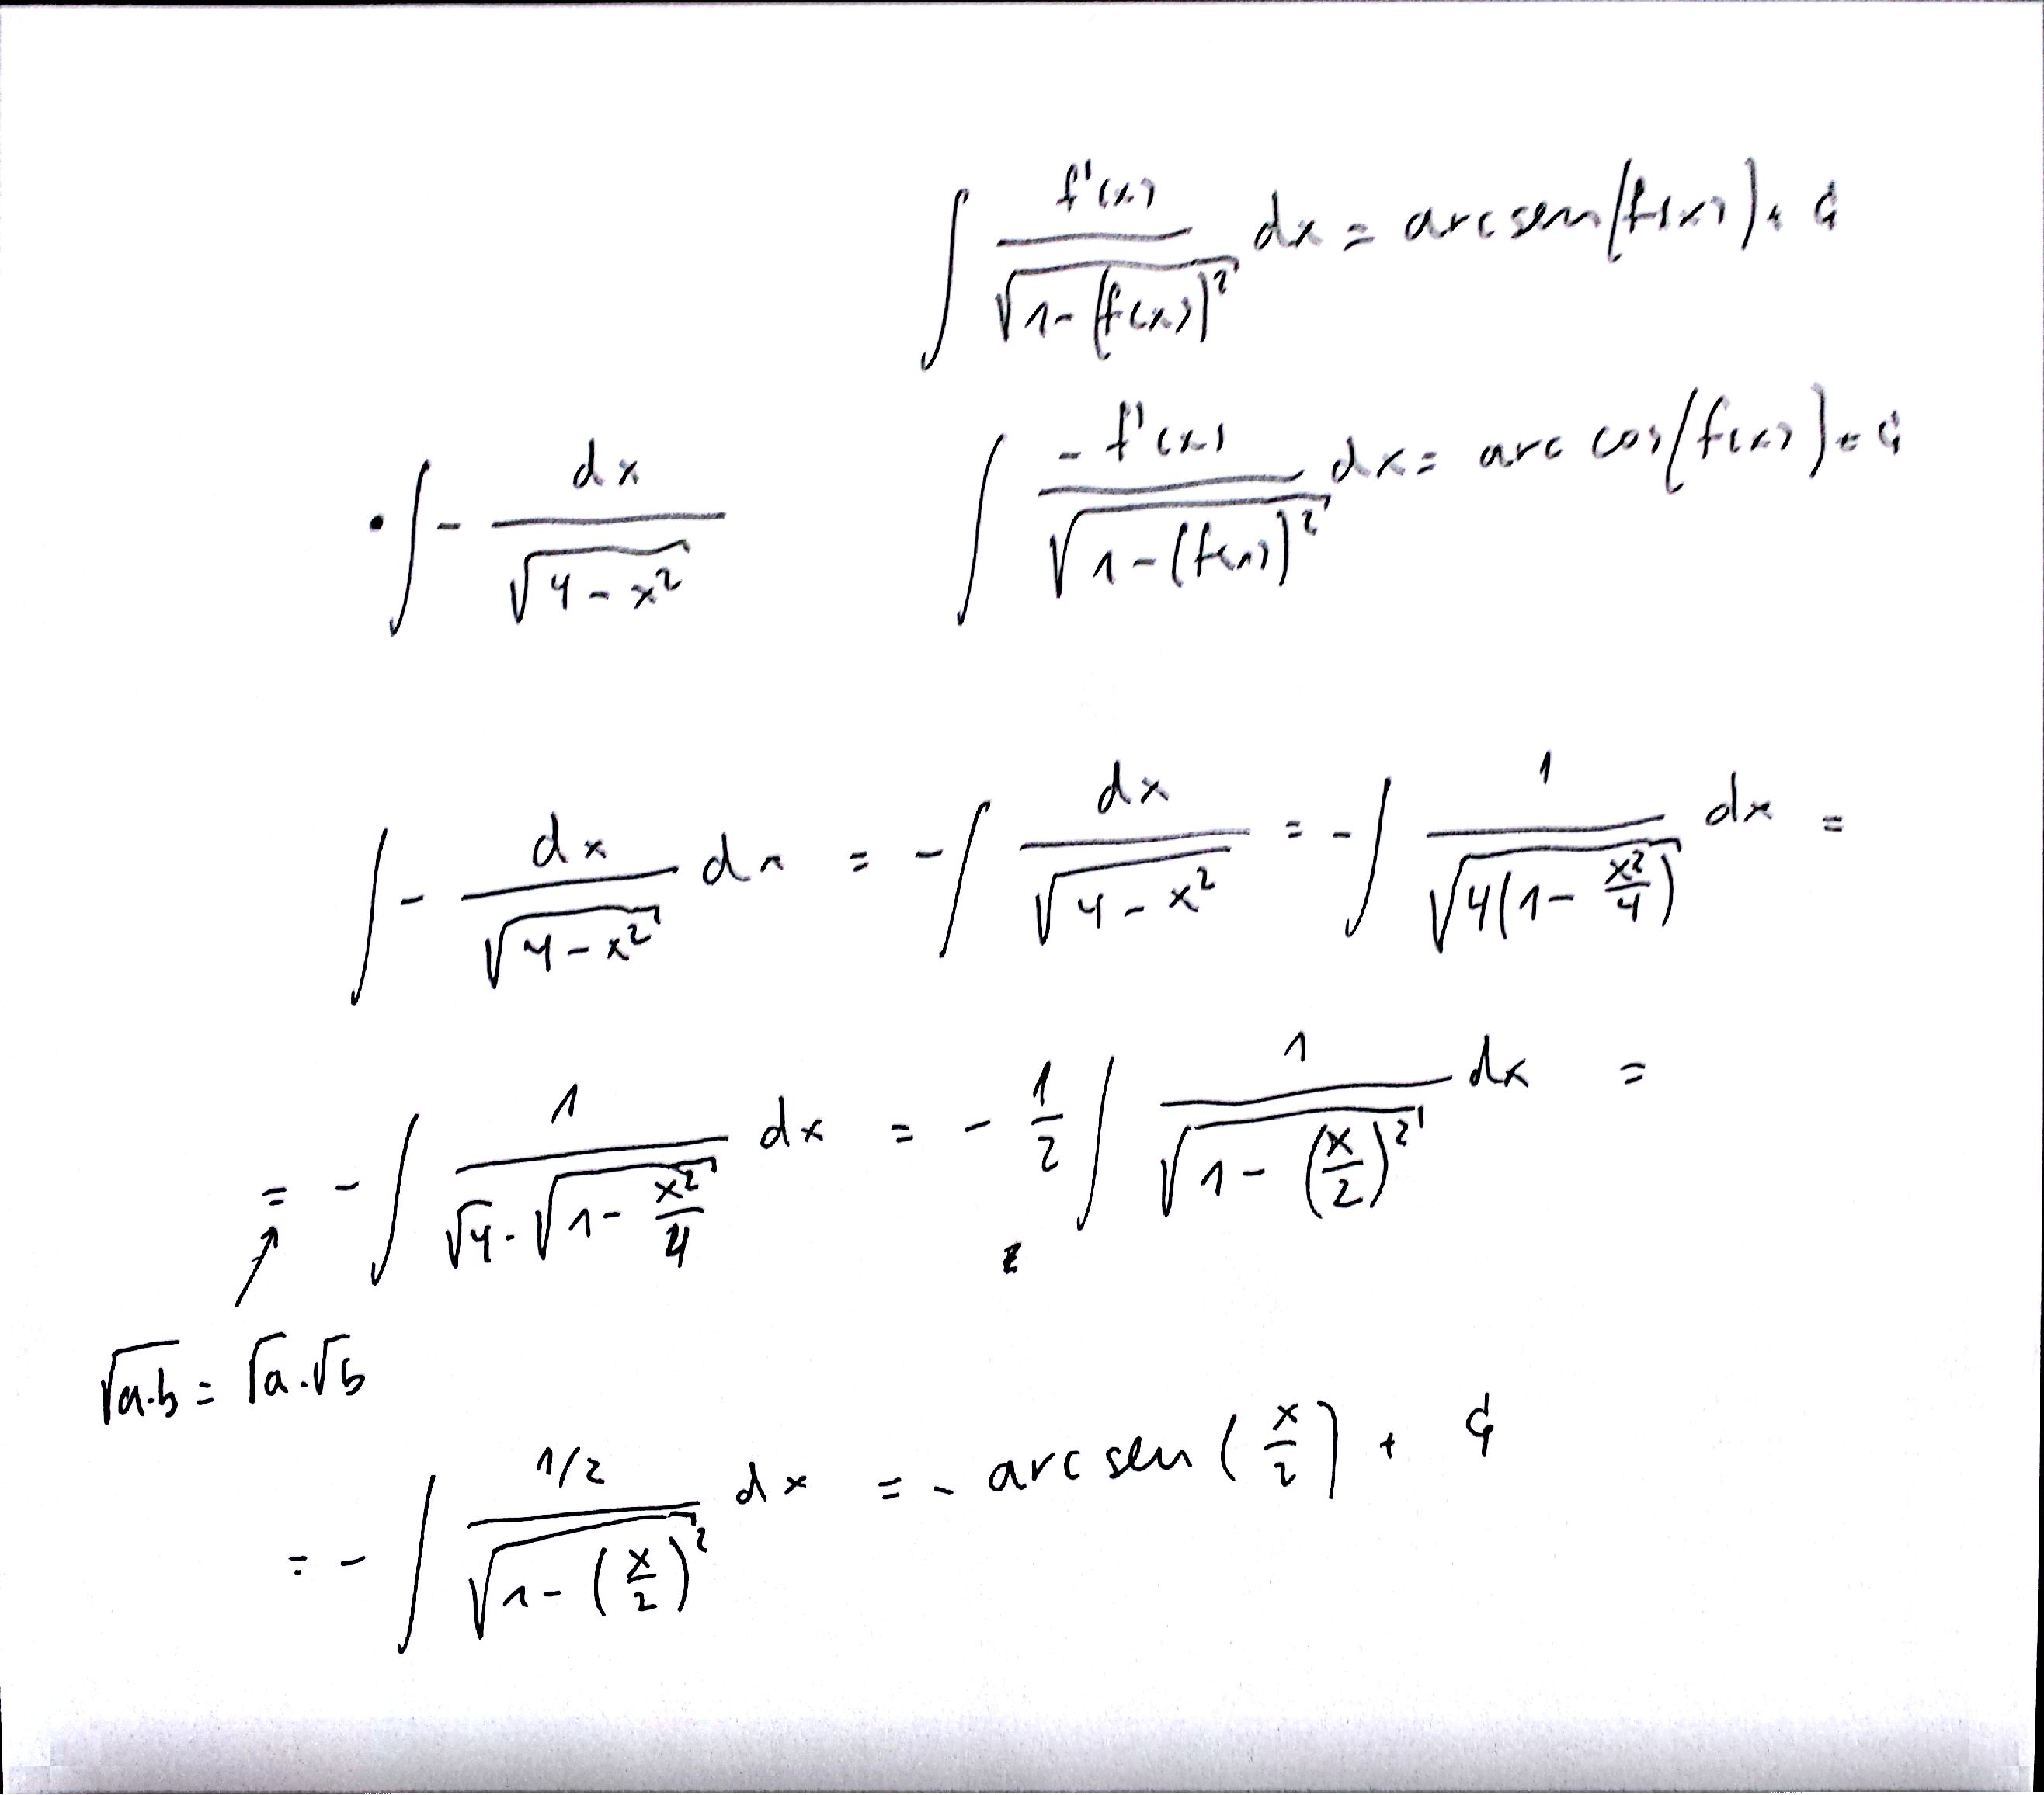 ∫ f'(x) / √(1-(f(x))²) dx = arc sen(f(x)) + C
∫ - dx / √(4-x²)
∫ -f'(x) / √(1-(f(x))²) dx = arc cos(f(x)) + C
∫ - dx / √(4-x²) dx = -∫ dx / √(4-x²) = -∫ 1 / √(4(1-x²/4)) dx =
= -∫ 1 / (√4·√(1-x²/4)) dx = -1/2 ∫ 1 / √(1-(x/2)²) dx =
√a·b = √a·√b
= -∫ 1/2 / √(1-(x/2)²) dx = - arc sen(x/2) + C